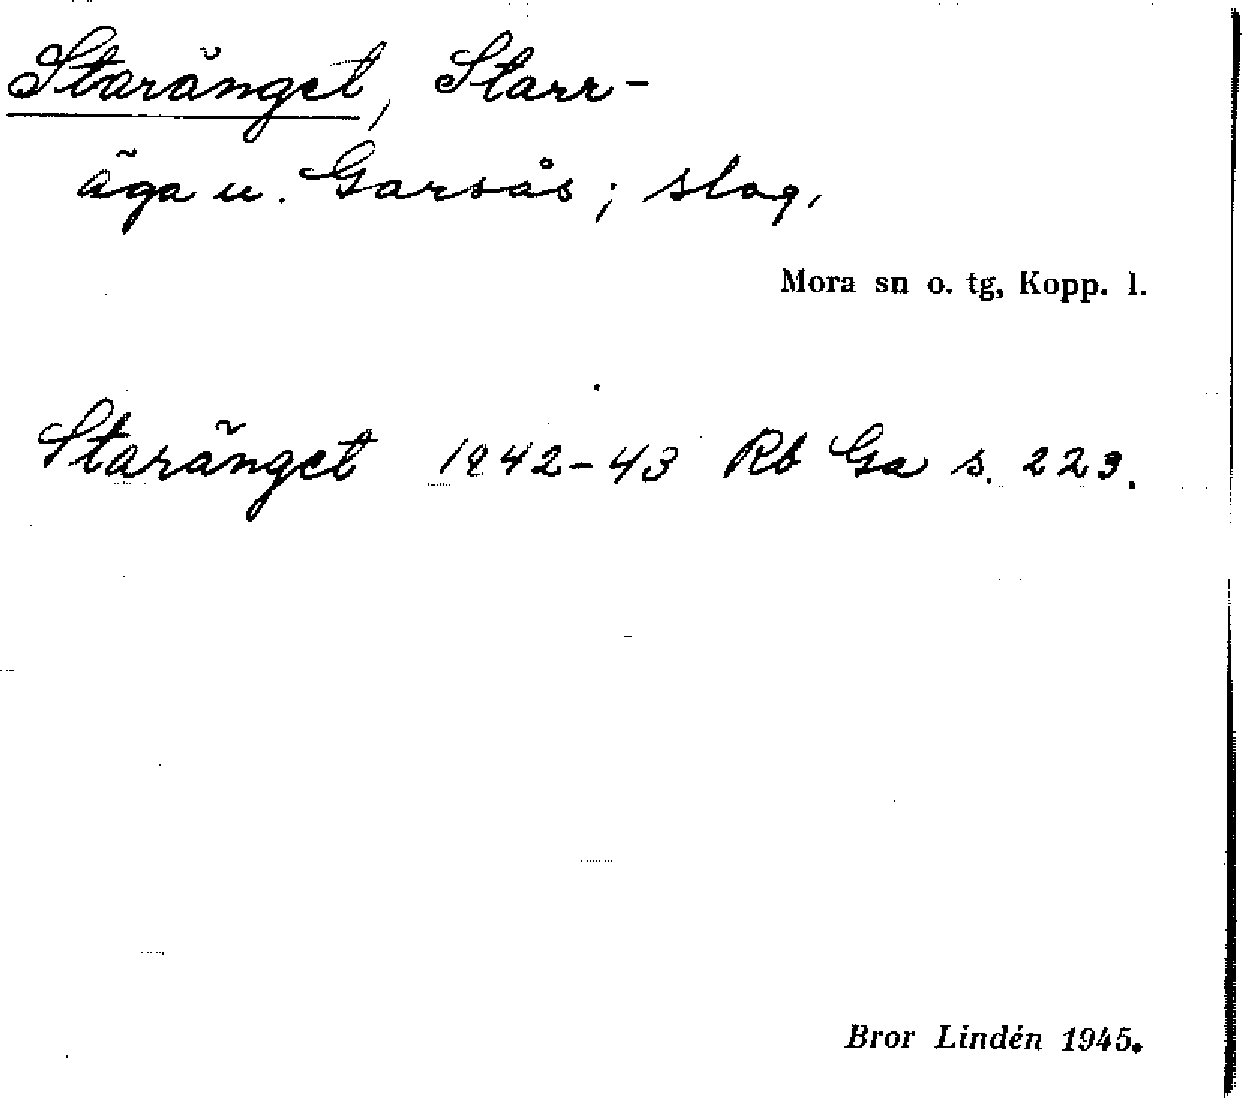 Staränget, Starr-
äga u. Garsås; slog.
Mora sn o. tg, Kopp. l.
Staränget 1842-43 Rb Ga s. 223.
Bror Lindén 1945.